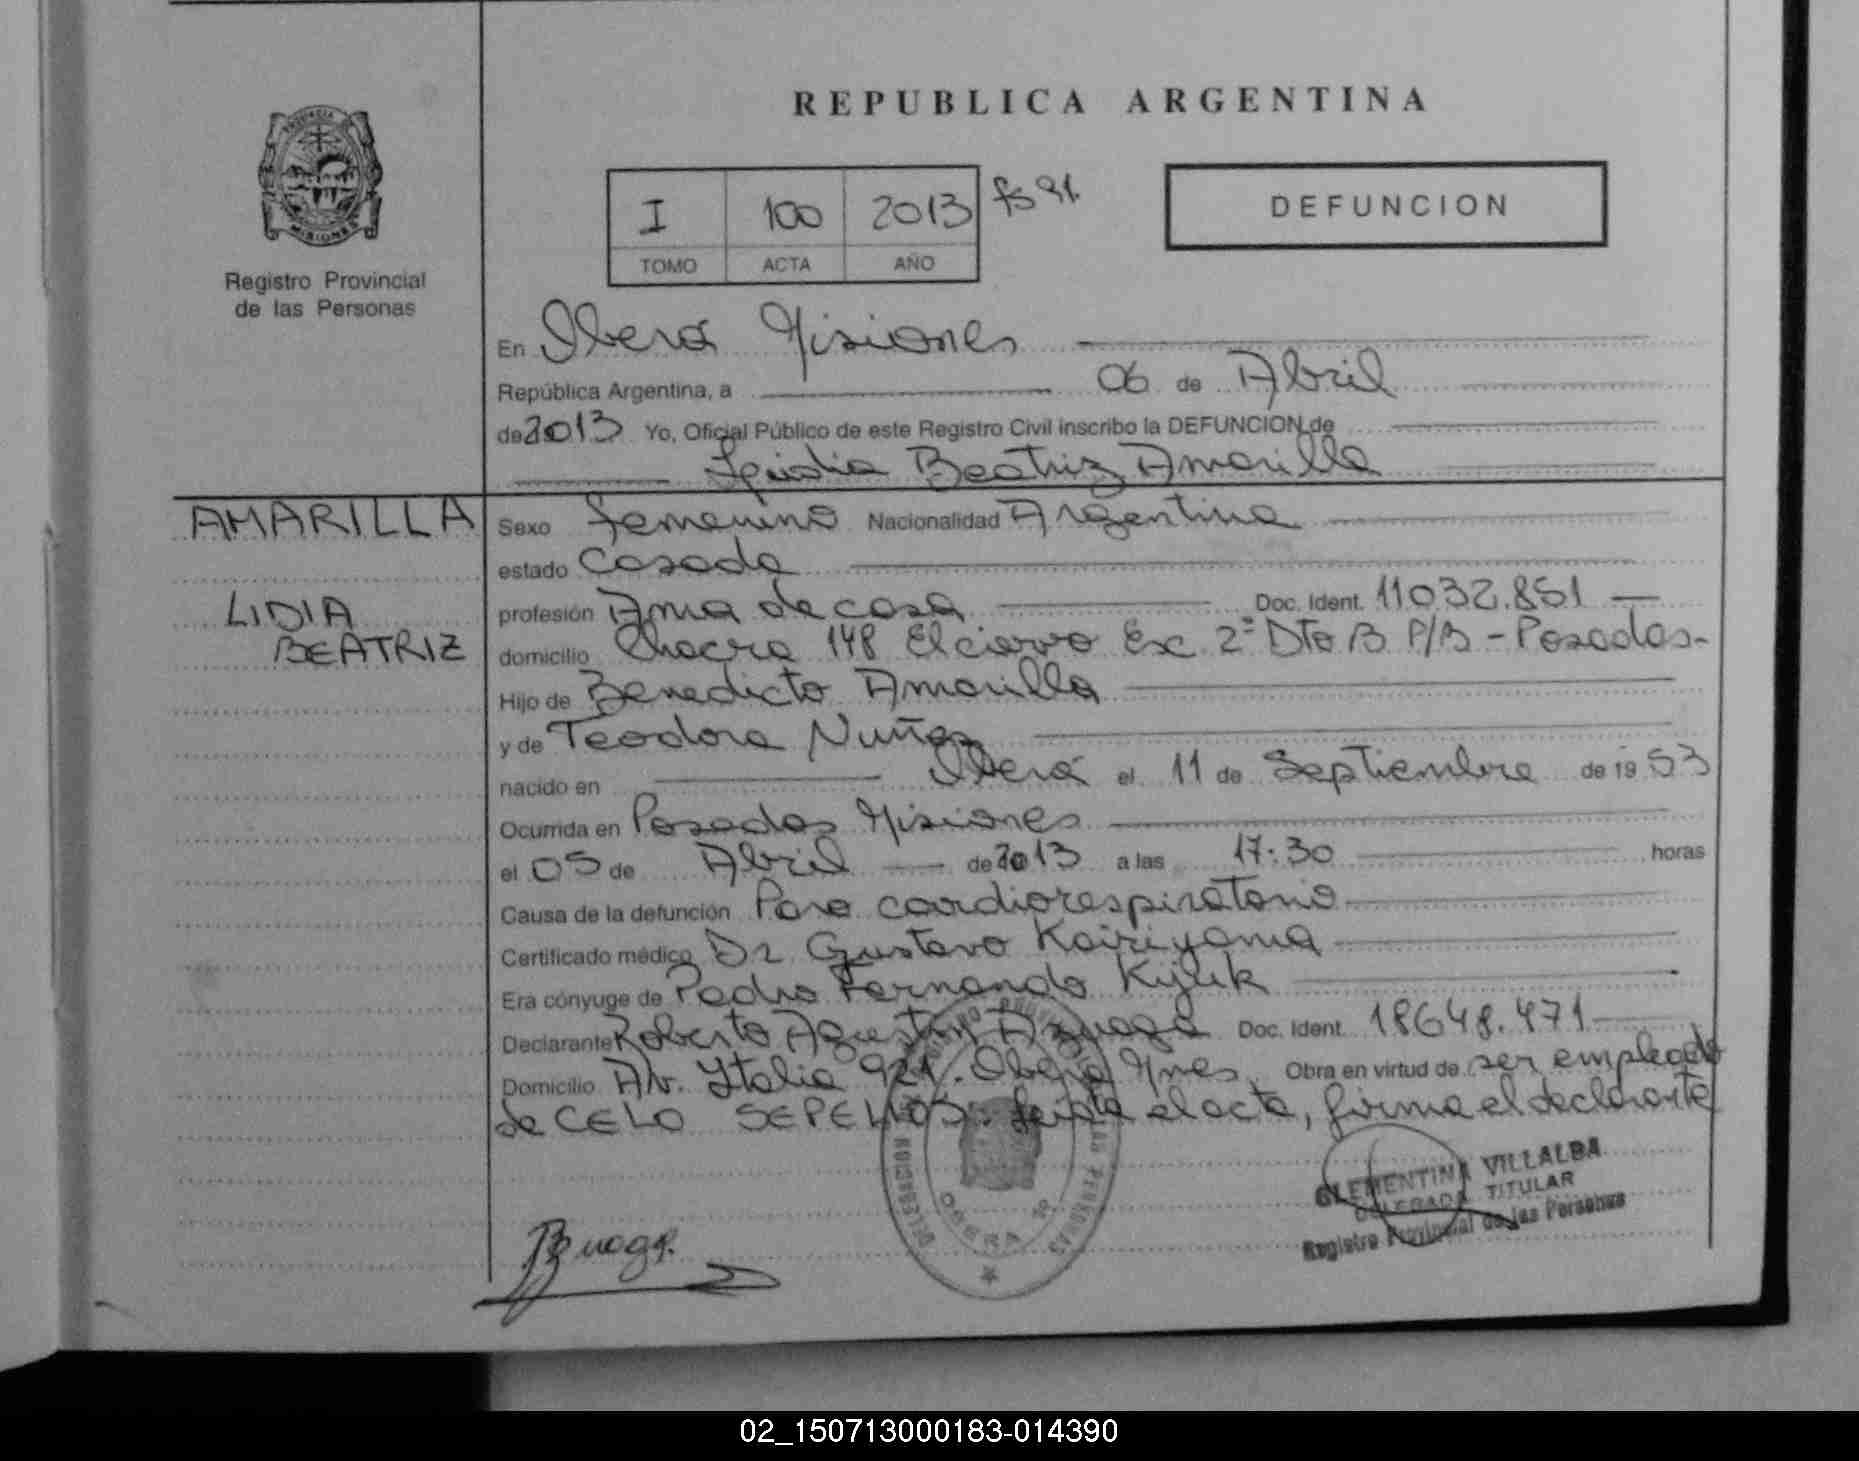 REPUBLICA ARGENTINA
PROVINCIA
MISIONES
Registro Provincial
de las Personas
I 100 2013 fs 91.
TOMO ACTA AÑO
DEFUNCION
En Oberá Misiones
República Argentina, a 06 de Abril
de 2013 Yo, Oficial Público de este Registro Civil inscribo la DEFUNCION de
Beatriz Amarilla
AMARILLA
LIDIA
BEATRIZ
Sexo femenino Nacionalidad Argentina
estado Casada
profesión Ama de casa Doc. Ident. 11032.851
domicilio Chacra 148 El ciervo Esc 2º Dto B P/B - Posadas-
Hijo de Benedicto Amarilla
y de Teodora Nuñez
nacido en Oberá el 11 de Septiembre de 1953
Ocurrida en Posadas Misiones
el 05 de Abril de 2013 a las 17:30 horas
Causa de la defunción Paro cardiorespiratorio
Certificado médico Dr Gustavo Kairiyama
Era cónyuge de Pedro Fernando
Declarante Roberto Agustin Azuaga Doc. Ident. 18648.471
Domicilio Av. Italia 921. Oberá Mnes Obra en virtud de ser empleado
de CELO SEPELIOS. el acta, firma el declarante
OBERA
CLEMENTINA VILLALBA
DELEGADA TITULAR
Registro Provincial de las Personas
02_150713000183-014390